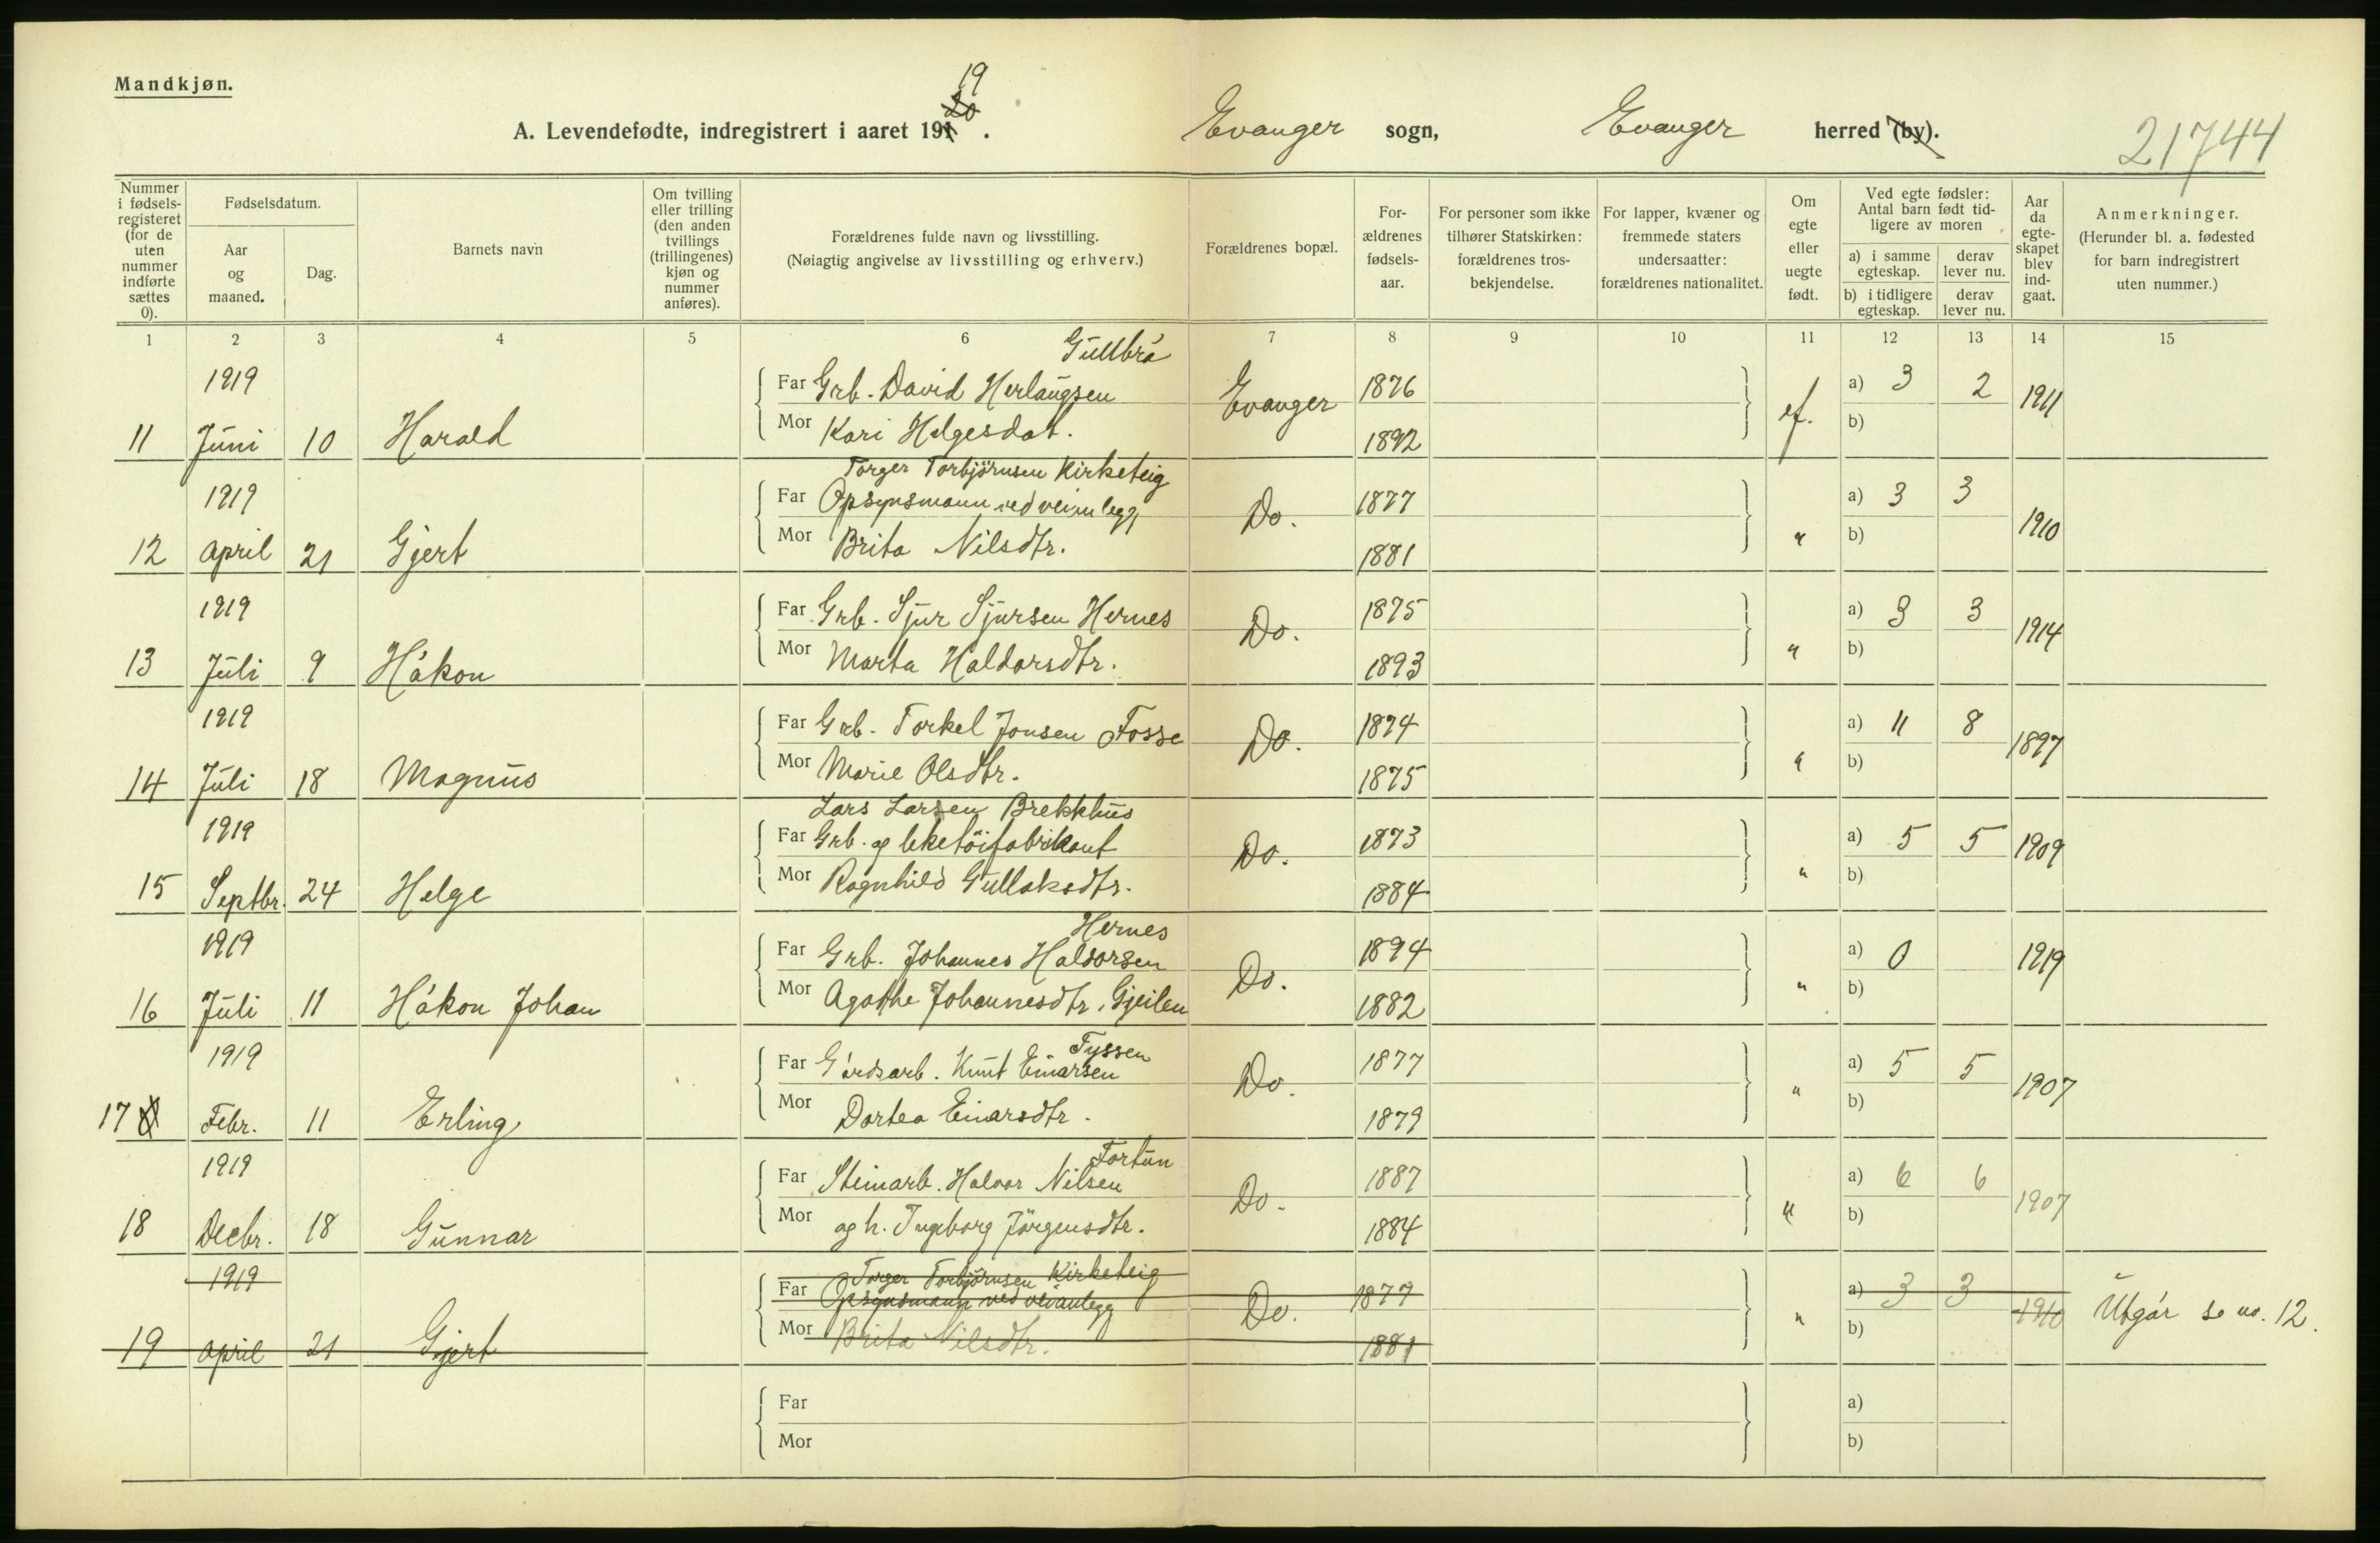 Mandkjøn.
A. Levendefødte, indregistrert i aaret 19 19.
Evanger sogn, Evanger herred (by).
21744
Nummer i fødsels-registeret (for de uten nummer indførte sættes 0).
Fødselsdatum.
Aar og maaned.
Dag.
Barnets navn
Om tvilling eller trilling (den anden tvillings (trillingenes) kjøn og nummer anføres).
Forældrenes fulde navn og livsstilling.
(Nøiagtig angivelse av livsstilling og erhverv.)
Forældrenes bopæl.
For-ældrenes fødsels-aar.
For personer som ikke tilhører Statskirken: forældrenes tros-bekjendelse.
For lapper, kvæner og fremmede staters undersaatter: forældrenes nationalitet.
Om egte eller uegte født.
Ved egte fødsler: Antal barn født tid-ligere av moren
a) i samme egteskap.
derav lever nu.
b) i tidligere egteskap.
derav lever nu.
Aar da egte-skapet blev ind-gaat.
Anmerkninger.
(Herunder bl. a. fødested for barn indregistrert uten nummer.)
1 2 3 4 5 6 7 8 9 10 11 12 13 14 15
Gullbrå
1919 Far Grb. David Herlaugsen Evanger 1876 a) 3 2 1911
11 Juni 10 Harald Mor Kari Helgesdat. 1892 ef. b)
Torger Torbjörnsen Kirketeig
1919 Far Opsynsmann ved veianlegg Do. 1877 a) 3 3 1910
12 April 21 Gjert Mor Brita Nilsdtr. 1881 " b)
1919 Far Grb. Sjur Sjursen Hernes Do. 1875 a) 3 3 1914
13 Juli 9 Håkon Mor Marta Haldorsdtr. 1893 " b)
1919 Far Grb. Torkel Jonsen Fosse Do. 1874 a) 11 8 1897
14 Juli 18 Magnus Mor Marie Olsdtr. 1875 " b)
Lars Larsen Brekkhus
1919 Far Grb. og leketöifabrikant Do. 1873 a) 5 5 1909
15 Septbr. 24 Helge Mor Ragnhild Gullaksdtr. 1884 " b)
Hernes
1919 Far Grb. Johannes Haldorsen Do. 1894 a) 0 1919
16 Juli 11 Håkon Johan Mor Agathe Johannesdtr. Gjeilen 1882 " b)
Fyssen
1919 Far Gårdsarb. Knut Einarsen Do. 1877 a) 5 5 1907
17 Febr. 11 Erling Mor Dortea Einarsdtr. 1879 " b)
Fortun
1919 Far Steinarb. Halvor Nilsen Do. 1887 a) 6 6 1907
18 Decbr. 18 Gunnar Mor og h. Ingeborg Jörgensdtr. 1884 " b)
Torger Torbjörnsen Kirketeig
1919 Far Opsynsmann ved veianlegg Do. 1877 a) 3 3 1910 Utgår se no. 12.
19 April 21 Gjert Mor Brita Nilsdtr. 1881 " b)
Far a)
Mor b)